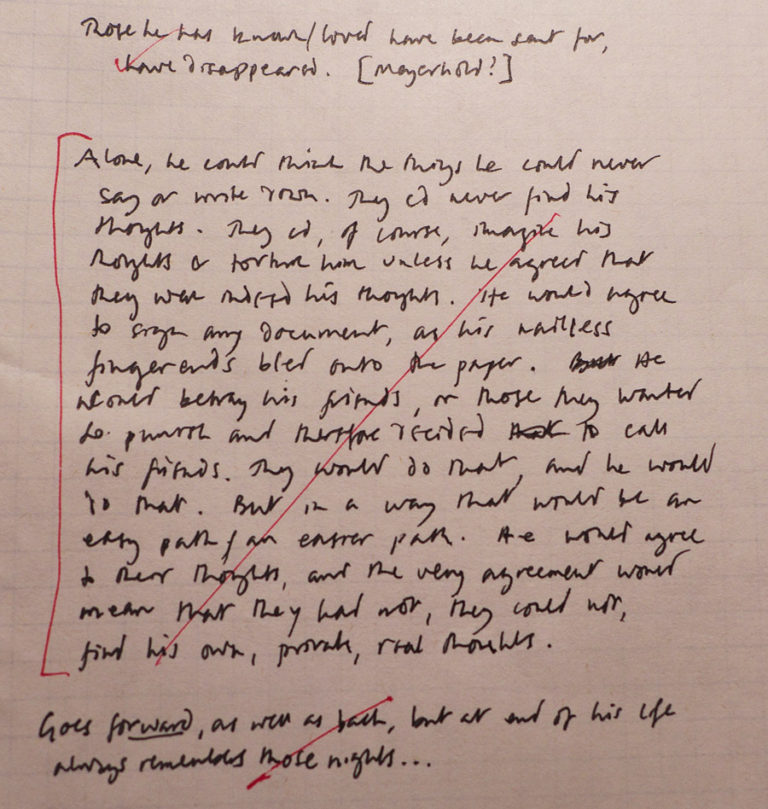 Those he has known/loved have been sent for,
have disappeared. [Meyerhold?]
Alone, he could think the things he could never
say or write down. They cd never find his
thoughts. They cd, of course, imagine his
thoughts & torture him unless he agreed that
they were indeed his thoughts. He would agree
to sign any document, as his nailless
fingerends bled onto the paper. But He
would betray his friends, or those they wanted
to punish and therefore decided that to call
his friends. They would do that, and he would
do that. But in a way that would be an
easy path / an easier path. He would agree
to their thoughts, and the very agreement would
mean that they had not, they could not,
find his own, private, real thoughts.
Goes forward, as well as back, but at end of his life
always remembers those nights...